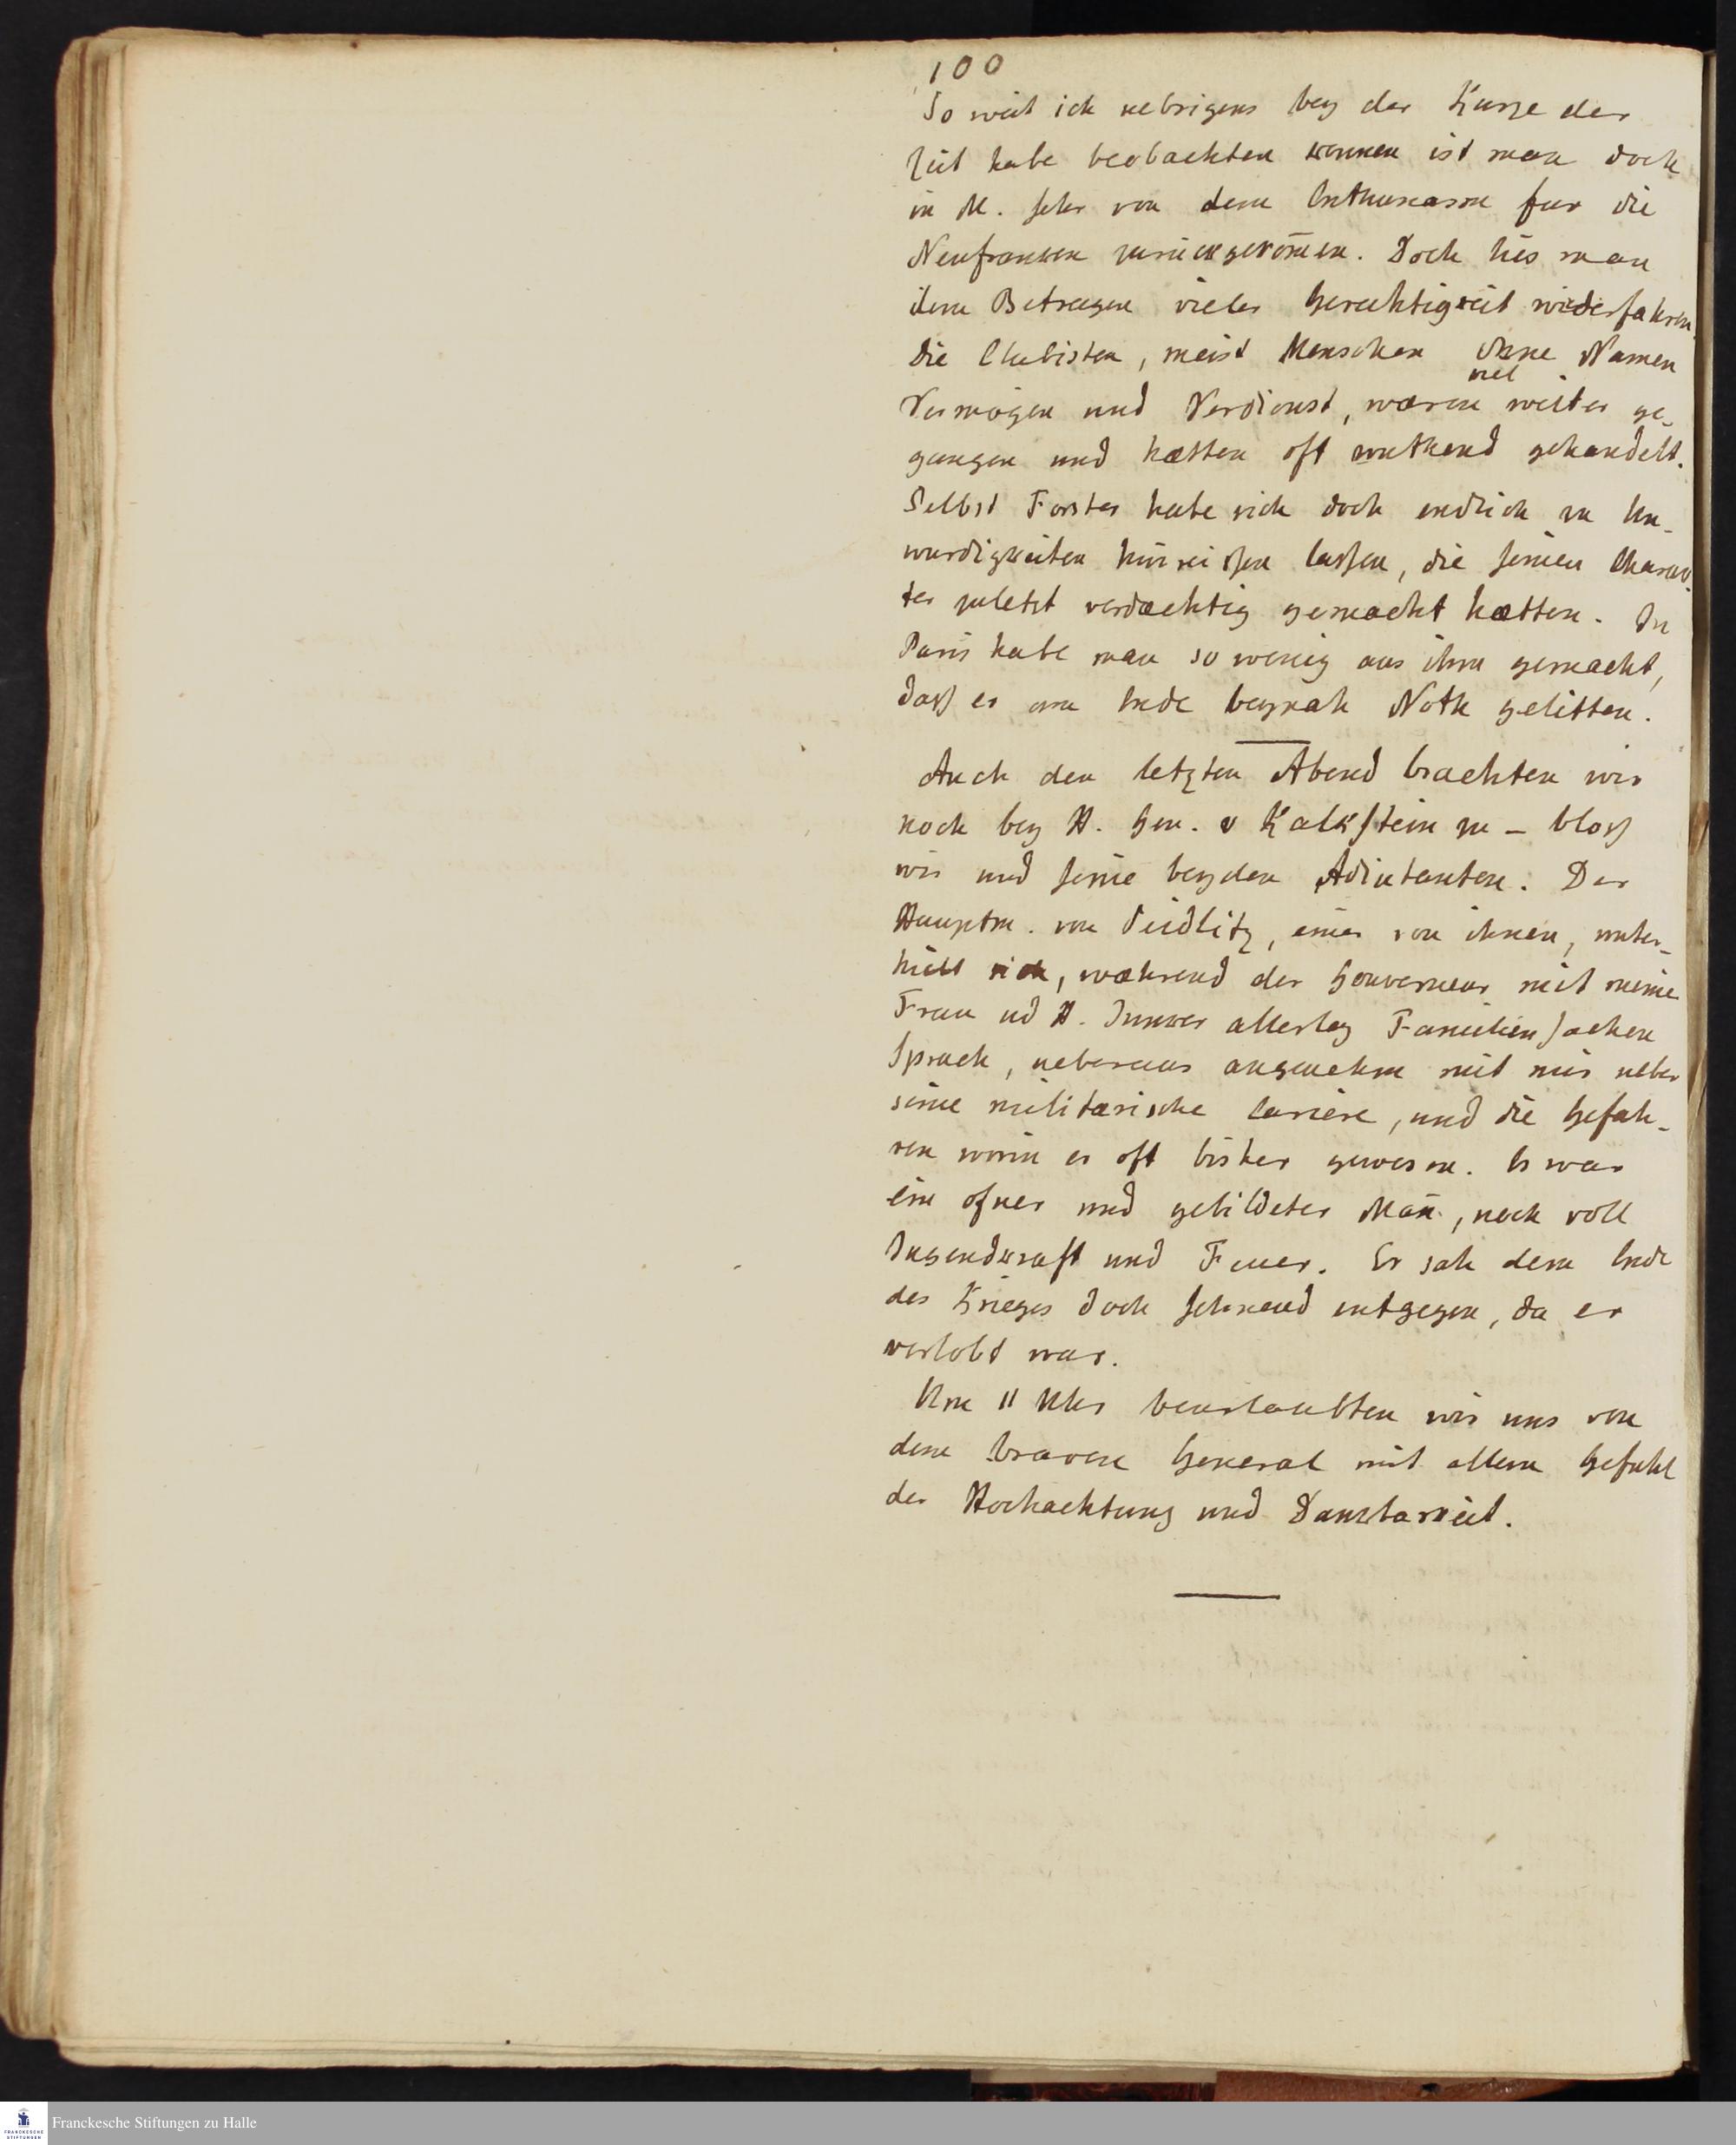 100
So weit ich uebrigens bey der Kurze der
Zeit habe beobachten konnen ist man doch
in M. sehr von dem Enthusiasm fur die
Neufranken zurückgekom̄en. Doch lies man
ihrem Betragen vieler Gerechtigkeit wiederfahren
die Clubisten, meist Menschen ohne Namen
viel
Vermögen und Verdienst, wæren weiter ge-
gangen und hætten oft wuthend gehandelt.
Selbst Forster habe sich doch endlich zu Un-
wurdigkeiten hinreissen lassen, die seinen Charak
ter zuletzt verdæchtig gemacht hætten. In
Paris habe man so wenig aus ihm gemacht,
dass er am Ende beynah Noth gelitten.
Auch den letzten Abend brachten wir
noch bey H. Gen. v Kalkstein zu – bloss
wir und seine beyden Adiutanten. Der
Hauptm. von Seidlitz, einer von ihnen, unter-
hielt sich, wæhrend der Gouverneur mit meine
Frau ud H. Junker allerley Familiensachen
sprach, ueberaus angenehm mit mir ueber
seine militærische Cariere, und die Gefah-
ren worin er oft bisher gewesen. Es war
ein ofner und gebildeter Man̄, noch voll
Jugendkraft und Feuer. Er sah dem Ende
des Krieges doch sehnend entgegen, da er
verlobt war.
Um 11 Uhr beurlaubten wir uns von
dem braven General mit allem Gefuhl
der Hochachtung und Dankbarkeit.
Franckesche Stiftungen zu Halle
FRANCKESCHE
STIFTUNGEN